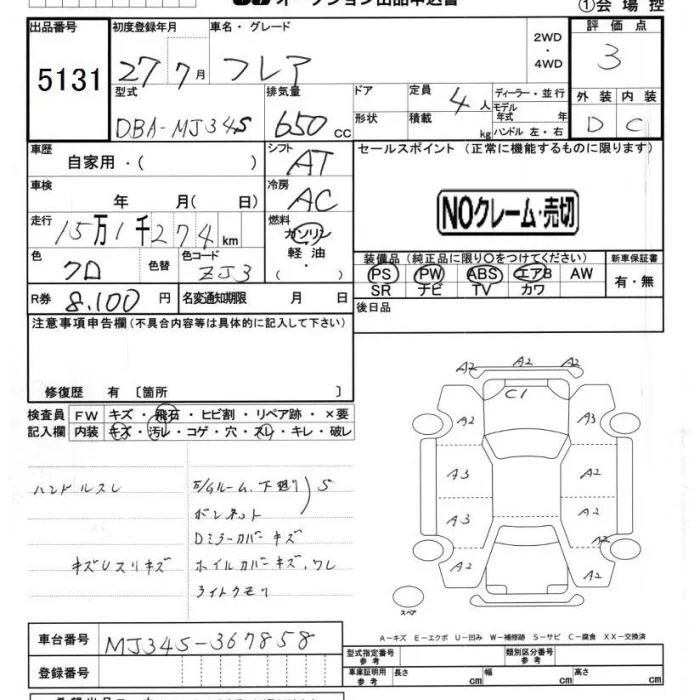 オークション出品申込書
①会場控
出品番号
5131
初度登録年月
27 7月
車名・グレード
フレア
2WD
・
4WD
評価点
3
型式
DBA-MJ34S
排気量
650 cc
ドア
形状
定員
4人
積載
kg
ディーラー・並行
モデル
年式 年
ハンドル 左・右
外装 内装
D C
車歴
自家用・( )
シフト
AT
セールスポイント(正常に機能するものに限ります)
NOクレーム・売切
車検
年 月( 日)
冷房
AC
走行
15万1千274km
燃料
ガソリン
軽油
・( )
色
クロ
色替
色コード
ZJ3
装備品(純正品に限り○をつけてください)
PS PW ABS エアB AW
SR ナビ TV カワ
新車保証書
有・無
R券 8,100円
名変通知期限 月 日
後日品
注意事項申告欄(不具合内容等は具体的に記入して下さい)
修復歴 有 〔箇所 〕
検査員
記入欄
FW キズ・飛石・ヒビ割・リペア跡・×要
内装 キズ・汚レ・コゲ・穴・スレ・キレ・破レ
ハンドルスレ
キズUスリキズ
E/Gルーム、下廻り S
ボンネット
Dミラーカバーキズ
ホイルカバーキズ、ワレ
ライトクモリ
A2 A2 A2
C1
A2 A3
A3 A2
A3 A2
A2
A2 A2
スペア
A-キズ E-エクボ U-凹み W-補修跡 S-サビ C-腐食 XX-交換済
車台番号
MJ34S-367858
登録番号
型式指定番号
参考
類別区分番号
参考
車庫証明用
参考
長さ cm
幅 cm
高さ cm